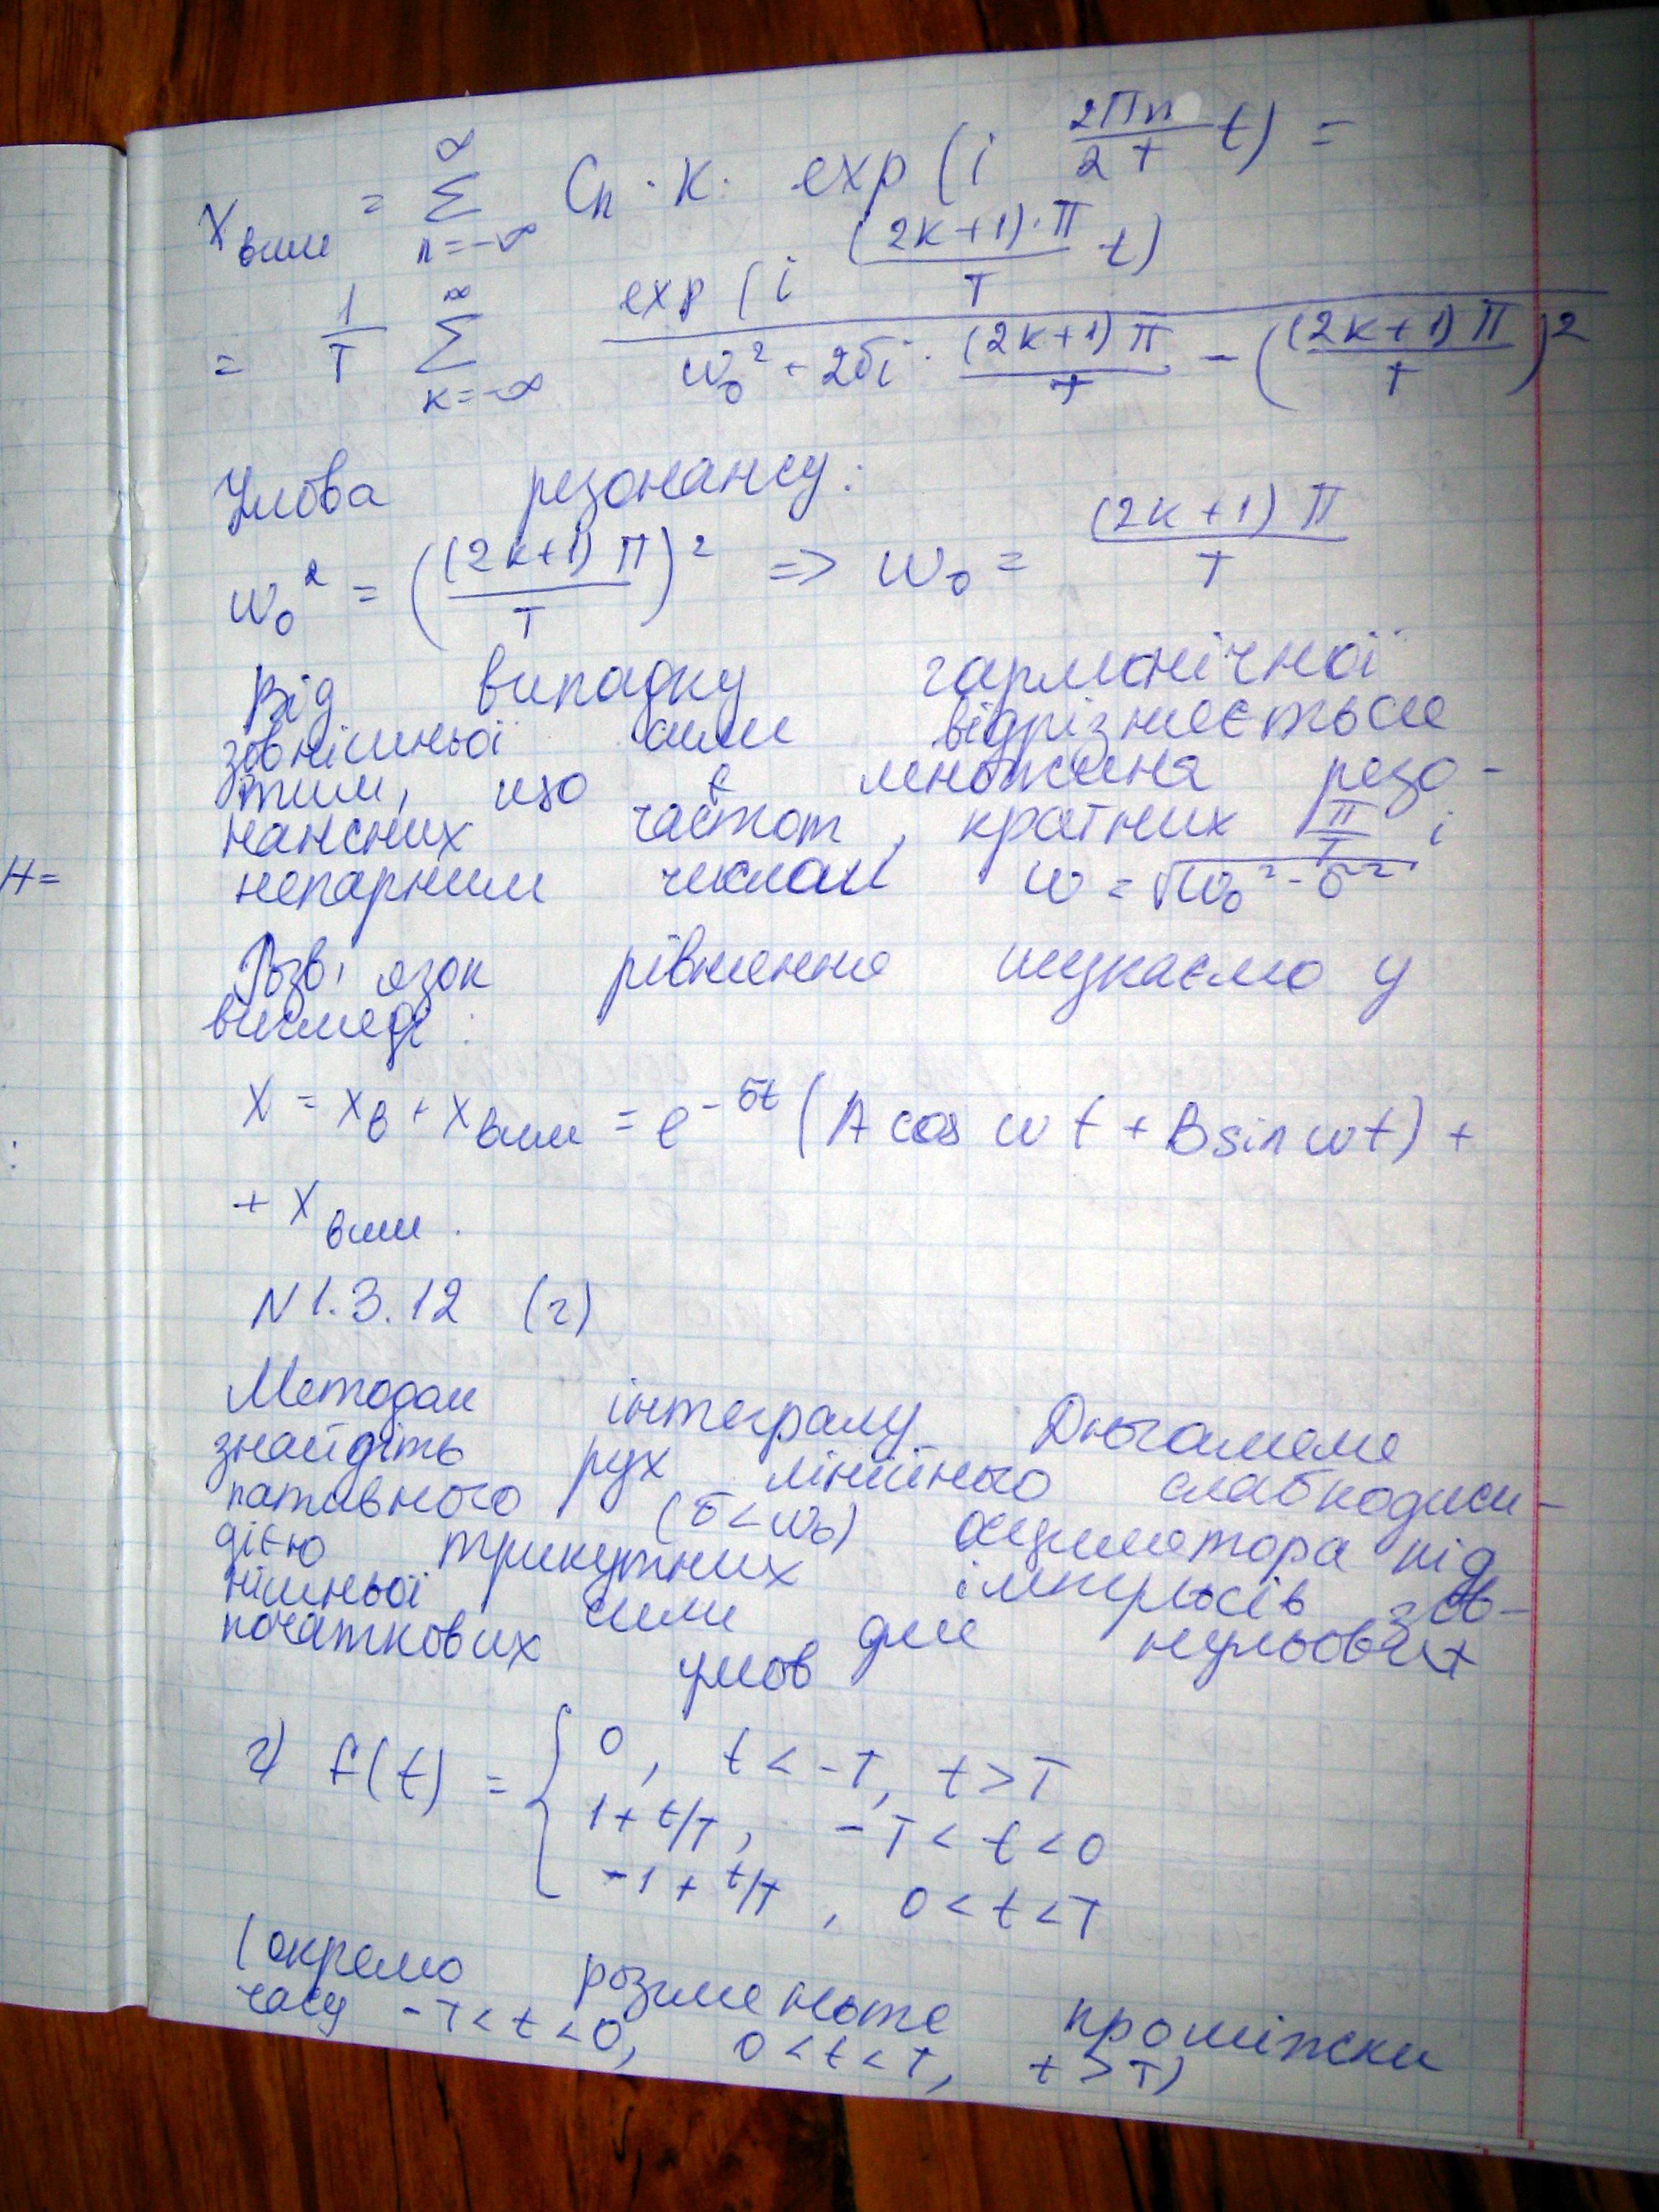 x вим = ∞ Σ n=-∞ Cn · K · exp (i 2Πn/2T t) =
= 1/T ∞ Σ k=-∞ exp (i (2k+1)·Π/T t) / ω₀² + 2δi · (2k+1)Π/T - ((2k+1)Π/T)²
Умова резонансу:
ω₀² = ((2k+1)Π/T)² => ω₀ = (2k+1)Π/T
Від випадку гармонічної
зовнішньої сили відрізняється
тим, що є множина резо-
нансних частот, кратних Π/T і
непарним числам ω = √ω₀² - δ²
H=
Розв'язок рівняння шукаємо у
вигляді:
x = xв + x вим = e^-δt (A cos ωt + B sin ωt) +
:
+ x вим.
N 1.3.12 (г)
Методом інтегралу Дюгамеля
знайдіть рух лінійного слабкодиси-
пативного (δ<ω₀) осцилятора під
дією трикутних імпульсів зов-
нішньої сили для нульових
початкових умов
г) f(t) = { 0, t < -T, t > T
1 + t/T, -T < t < 0
-1 + t/T, 0 < t < T
(окремо розгляньте проміжки
часу -T < t < 0, 0 < t < T, t > T)